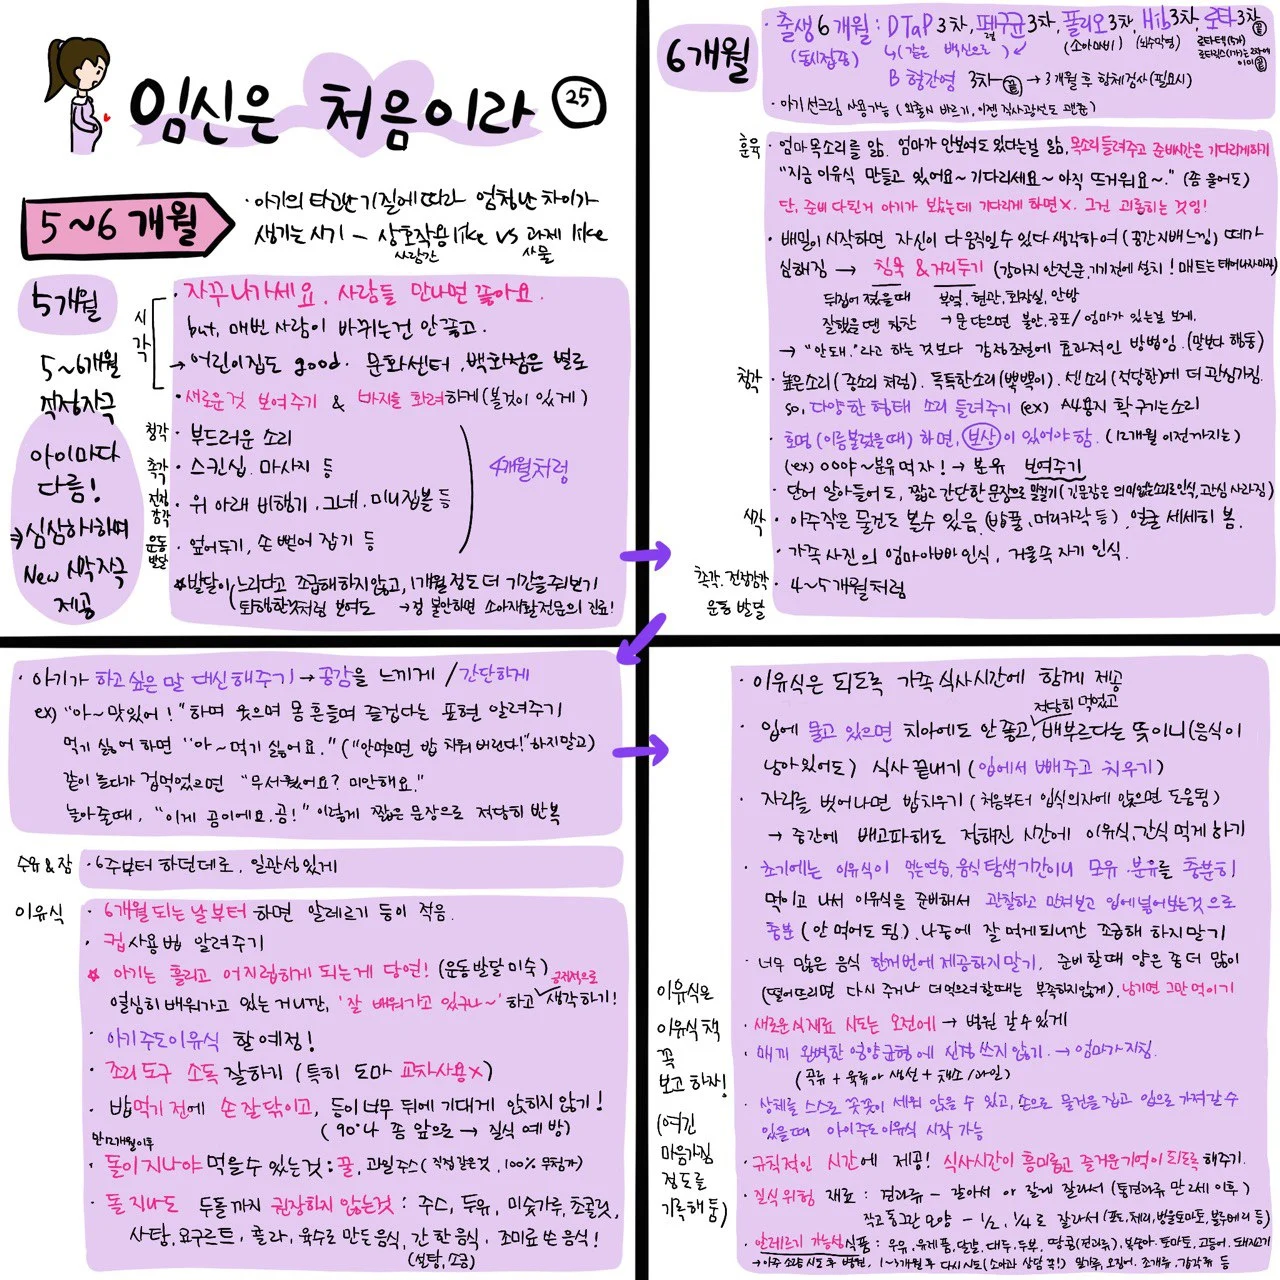 임신은 처음이라 25
5~6개월
· 아기의 타고난 기질에 따라 엄청난 차이가
생기는 시기 — 상호작용 like vs 과제 like
사람간 사물
5개월
5~6개월
적정자극
아이마다
다름!
⇒ 심심해하면
New 시각자극
제공
시각
· 자꾸 나가세요. 사람들 만나면 좋아요.
but, 매번 사람이 바뀌는건 안좋고.
→ 어린이집도 good. 문화센터, 백화점은 별로
· 새로운것 보여주기 & 바지를 화려하게 (볼것이 있게)
청각 · 부드러운 소리
촉각 · 스킨십. 마사지 등
전정감각 · 위 아래 비행기, 그네, 미니짐볼 등
운동발달 · 엎어두기, 손 뻗어 잡기 등
4개월처럼
☆ 발달이 느리다고 조급해하지않고, 1개월 정도 더 기간을 두보기
퇴행한것처럼 보여도 → 정 불안하면 소아재활전문의 진료!
6개월
· 출생 6개월 : DTaP 3차, 폐구균 3차, 폴리오 3차, Hib 3차, 로타 3차 끝
(동시접종) ↳ (같은 백신으로) (소아마비) (뇌수막염) 로타텍(5가)
로타릭스(1가)는 2차에
이미 끝
B형간염 3차 — 끝 → 3개월 후 항체검사(필요시)
· 아기 선크림 사용가능 (외출시 바르기, 이젠 직사광선도 괜춘)
훈육 · 엄마 목소리를 앎. 엄마가 안보여도 있다는걸 앎, 목소리 들려주고 준비시간은 기다리게하기
"지금 이유식 만들고 있어요~ 기다리세요~ 아직 뜨거워요~." (좀 울어도)
단, 준비 다된거 아기가 봤는데 기다리게 하면 X. 그건 괴롭히는 것임!
· 배밀이 시작하면 자신이 다 움직일 수 있다 생각하여 (공간지배느낌) 떼가
심해짐 → 침묵 & 거리두기 (강아지 안전문, 기기 전에 설치! 매트는 태어나자마자)
뒤집어 졌을때 부엌, 현관, 화장실, 안방
잘했을 땐 칭찬 → 문 닫으면 불안, 공포 / 엄마가 있는걸 보게.
→ "안돼." 라고 하는 것보다 감정조절에 효과적인 방법임. (말보다 행동)
청각 · 높은소리 (종소리 처럼). 독특한소리 (빽빽이). 센소리 (적당한)에 더 관심가짐.
so, 다양한 형태 소리 들려주기 (ex) A4용지 확 구기는소리
· 호명 (이름불렀을때) 하면, 보상이 있어야 함. (12개월 이전까지는)
(ex) 00야~ 분유 먹자! → 분유 보여주기
· 단어 알아들어도, 짧고 간단한 문장으로 말걸기 (긴문장은 의미없는소리로 인식, 관심 사라짐)
시각 · 아주작은 물건도 볼수 있음 (밥풀, 머리카락 등), 얼굴 세세히 봄.
· 가족 사진의 엄마아빠 인식, 거울속 자기 인식.
촉각. 전정감각
운동 발달 · 4~5개월처럼
· 아기가 하고싶은 말 대신해주기 → 공감을 느끼게 / 간단하게
ex) "아~ 맛있어!" 하며 웃으며 몸 흔들며 즐겁다는 표현 알려주기
먹기 싫어 하면 "아~ 먹기 싫어요." ("안먹으면 밥 치워 버린다!" 하지말고)
같이 놀다가 겁먹었으면 "무서웠어요? 미안해요."
놀아줄때, "이게 곰이에요, 곰!" 이렇게 짧은 문장으로 적당히 반복
수유&잠 · 6주부터 하던데로, 일관성있게
이유식 · 6개월 되는 날부터 하면 알레르기 등이 적음.
· 컵 사용법 알려주기
☆ 아기는 흘리고 어지럽히게 되는게 당연! (운동발달 미숙) 긍정적으로
열심히 배워가고 있는 거니깐, '잘 배워가고 있구나~' 하고 생각하기!
· 아기주도이유식 할 예정!
· 조리도구 소독 잘하기 (특히 도마 교차사용 X)
· 밥먹기 전에 손 잘 닦이고, 등이 너무 뒤에 기대게 앉히지 않기!
(90°나 좀 앞으로 → 질식 예방)
만12개월이후
· 돌이 지나야 먹을수 있는것 : 꿀, 과일주스 (직접짠은것, 100% 무첨가)
· 돌 지나도 두돌까지 권장하지 않는것 : 주스, 두유, 미숫가루, 초콜릿,
사탕, 요구르트, 콜라, 육수로 만든음식, 간 한 음식, 조미료 쓴 음식!
(설탕, 소금)
· 이유식은 되도록 가족 식사시간에 함께 제공
적당히 먹었고
· 입에 물고 있으면 치아에도 안 좋고, 배부르다는 뜻이니 (음식이
남아있어도) 식사 끝내기 (입에서 빼주고 치우기)
· 자리를 벗어나면 밥치우기 (처음부터 입식의자에 앉으면 도움됨)
→ 중간에 배고파해도 정해진 시간에 이유식, 간식 먹게 하기
· 초기에는 이유식이 먹는연습, 음식 탐색기간이니 모유·분유를 충분히
먹이고 나서 이유식을 준비해서 관찰하고 만져보고 입에 넣어보는것으로
충분 (안 먹어도 됨). 나중에 잘 먹게 되니간 조급해 하지말기
· 너무 많은 음식 한꺼번에 제공하지말기, 준비할때 양은 좀 더 많이
(떨어뜨리면 다시 주거나 더먹으려할때는 부족하지않게). 남기면 그만 먹이기
· 새로운 식재료 시도는 오전에 → 병원 갈 수 있게
· 매끼 완벽한 영양균형에 신경쓰지 않기. → 엄마가 지침.
(곡류 + 육류 or 생선 + 채소/과일)
· 상체를 스스로 꼿꼿이 세워 앉을 수 있고, 손으로 물건을 집고 입으로 가져갈 수
있을때 아이주도이유식 시작 가능
· 규칙적인 시간에 제공! 식사시간이 흥미롭고 즐거운기억이 되도록 해주기.
· 질식위험 재료 : 견과류 — 갈아서 or 잘게 잘라서 (통견과류 만 2세 이후)
작고 동그란 모양 — 1/2, 1/4로 잘라서 (포도, 체리, 방울토마토, 블루베리 등)
· 알레르기 가능성식품 : 우유, 유제품, 달걀, 대두, 두부, 땅콩(견과류), 복숭아, 토마토, 고등어, 돼지고기
→ 아주 소량 시도 후 병원, 1~3개월 후 다시시도 (소아과 상담 꼭!) 밀가루, 오징어, 조개류, 갑각류 등
이유식은
이유식 책
꼭
보고 하자!
(여긴
마음가짐
정도를
기록해둠)